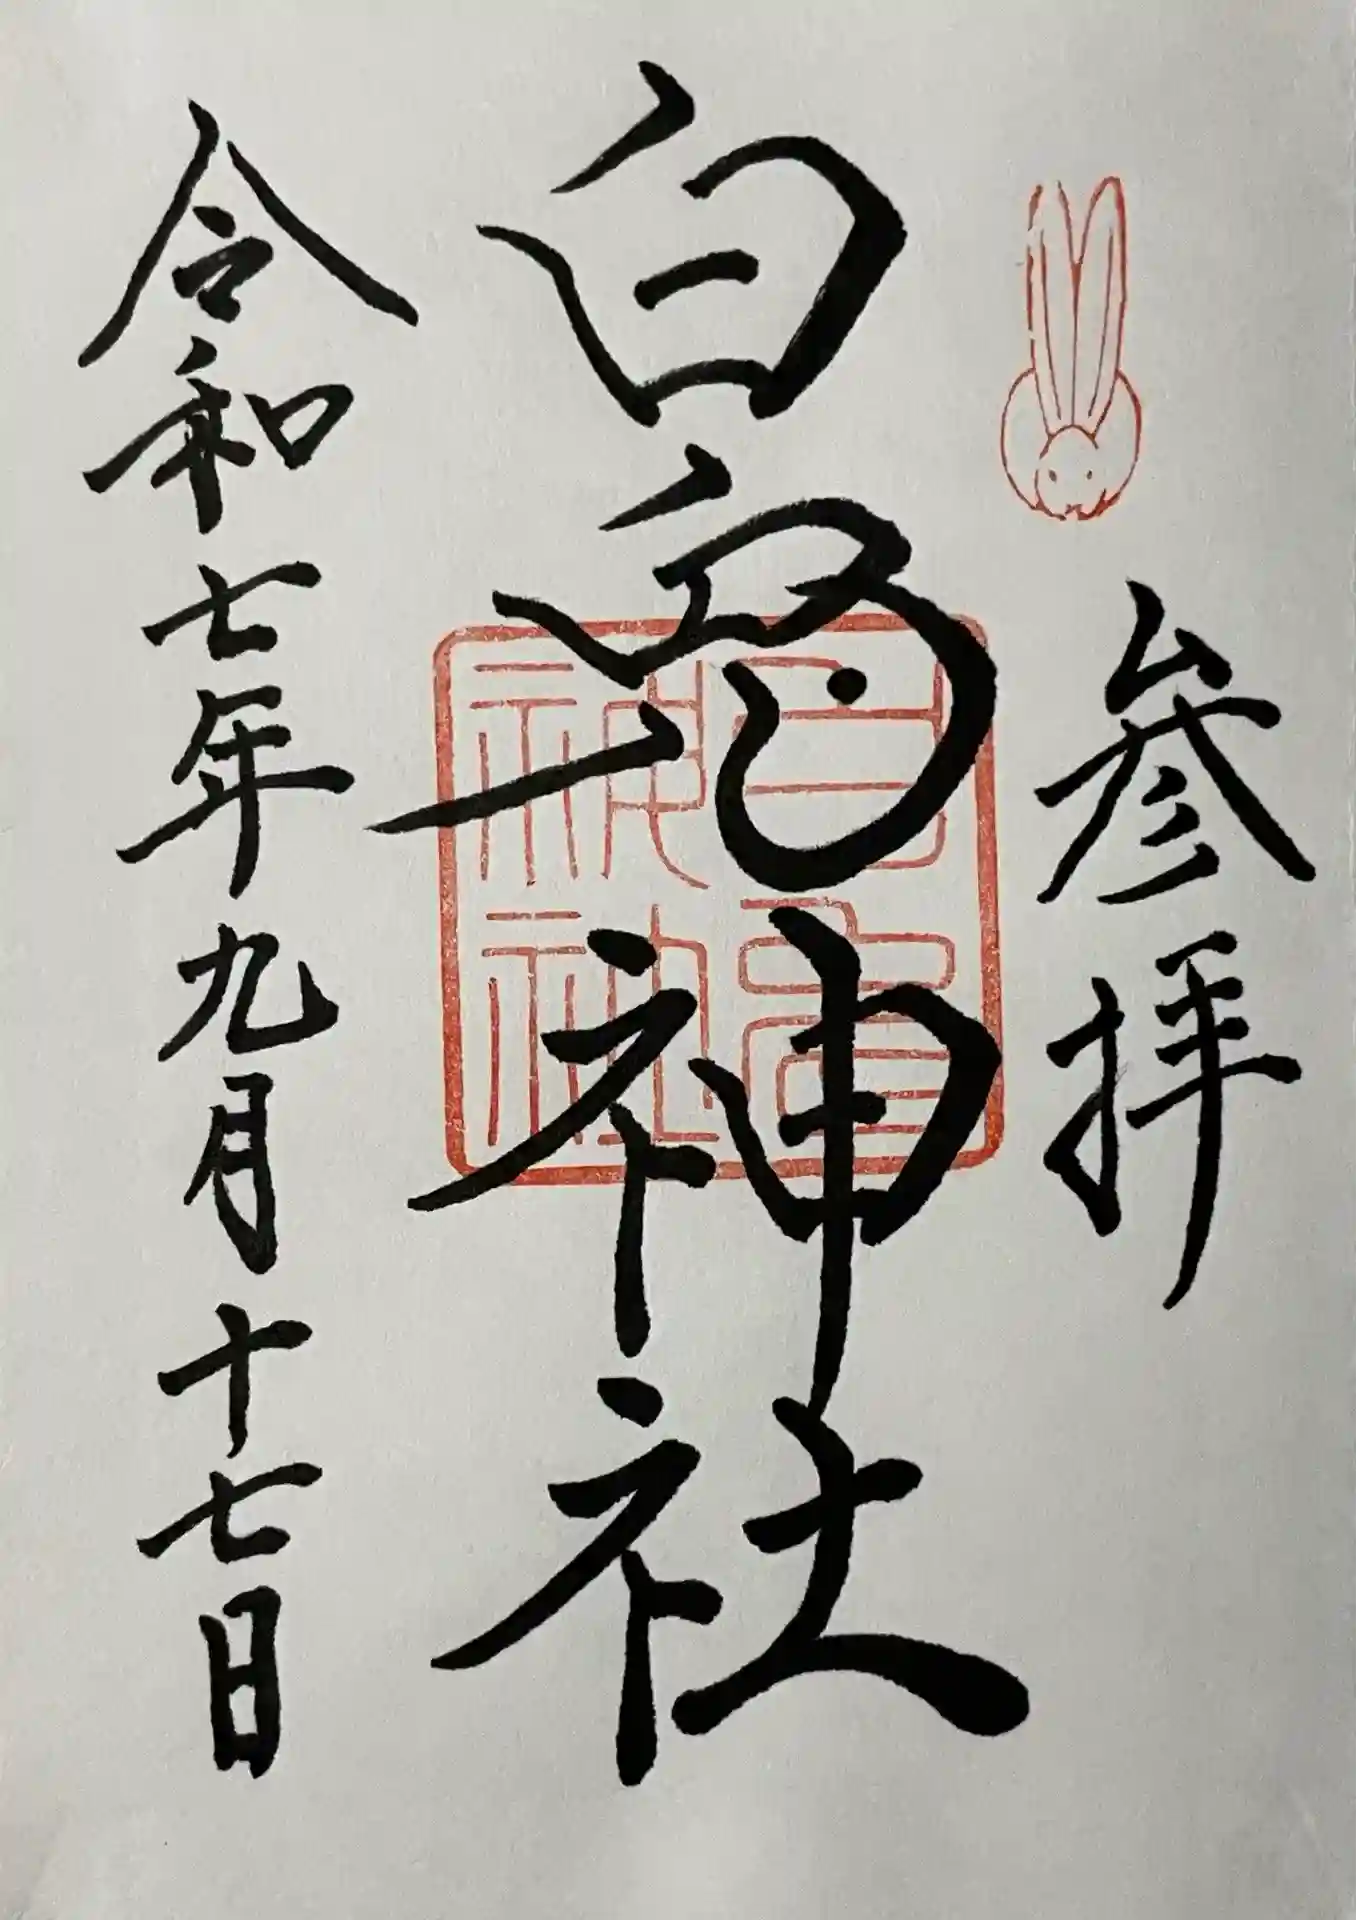 参拝
白兎神社
令和七年九月十七日
白兎神社